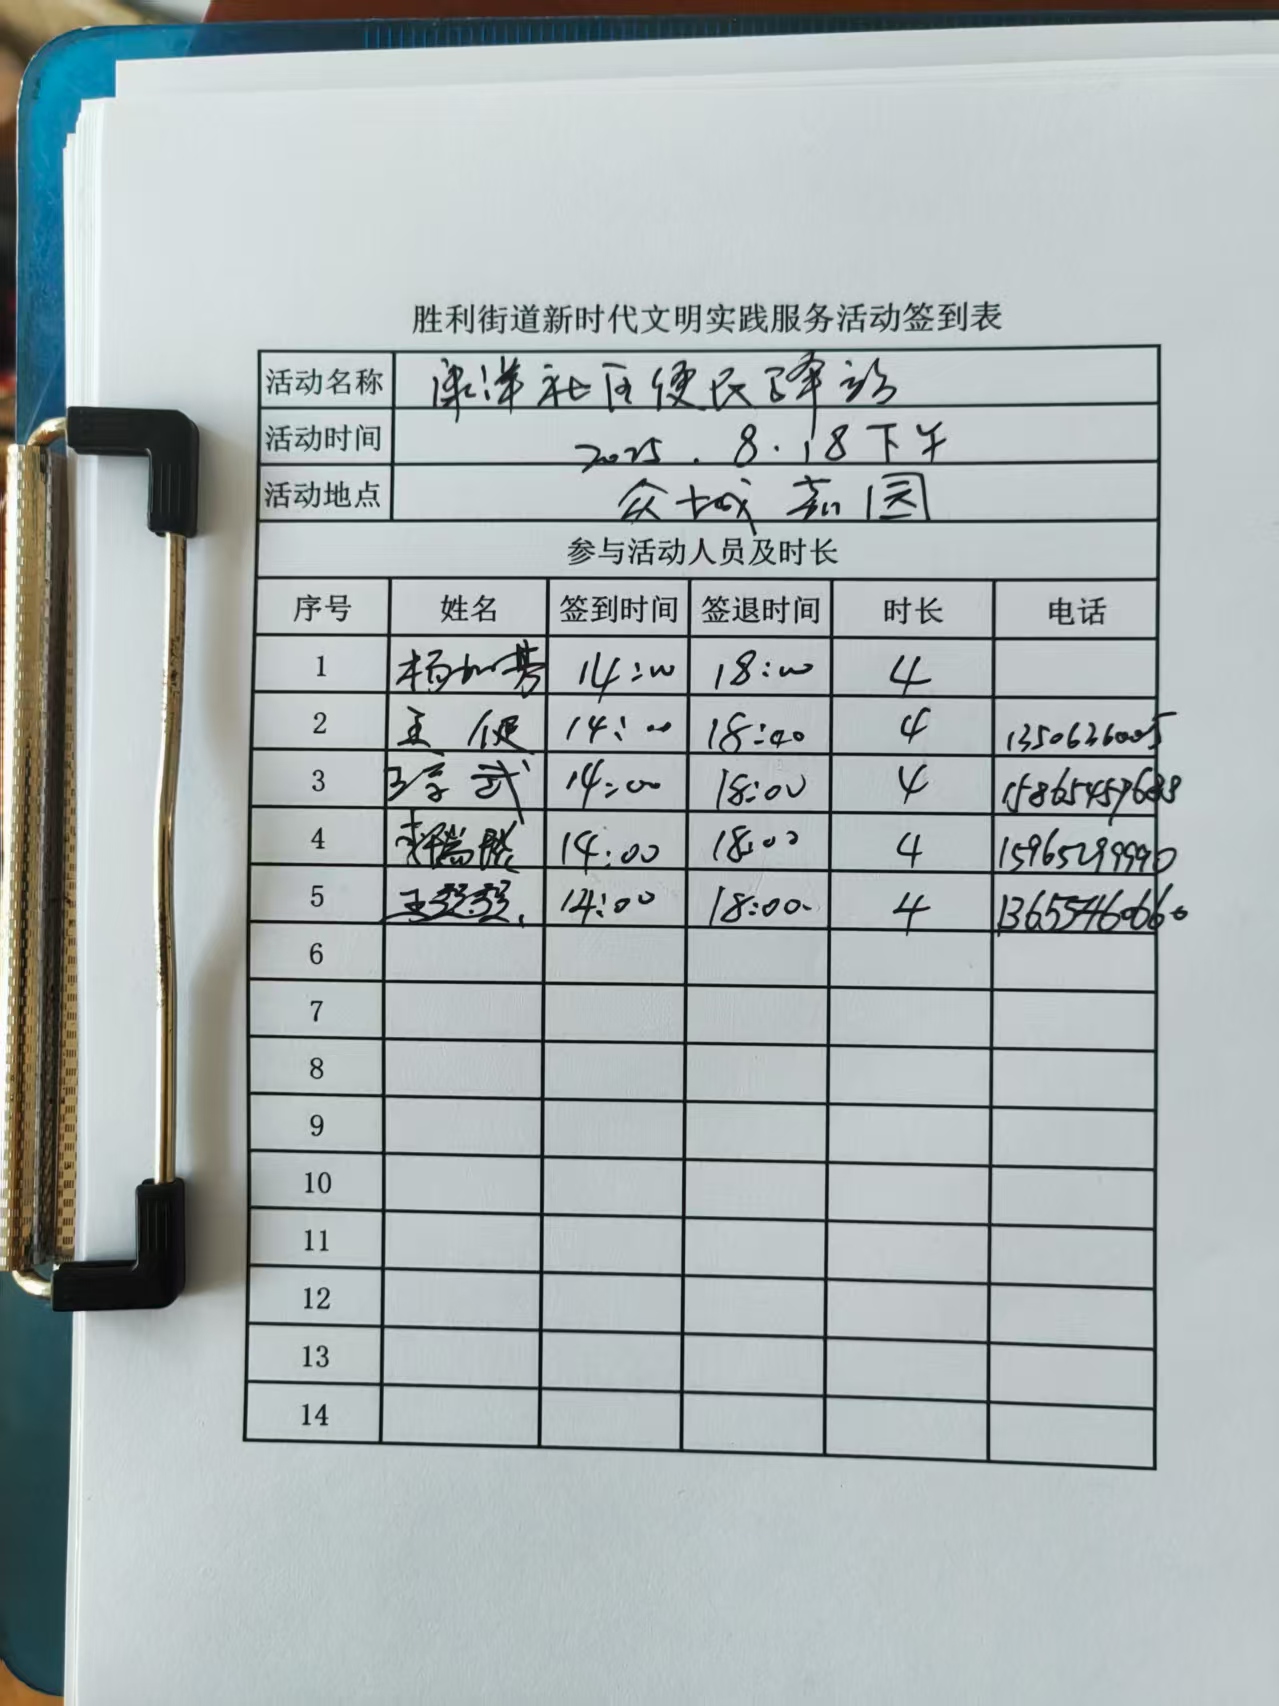 胜利街道新时代文明实践服务活动签到表
活动名称 社区便民驿站
活动时间 2025.8.18下午
活动地点 众城嘉园
参与活动人员及时长
序号 姓名 签到时间 签退时间 时长 电话
1 14:00 18:00 4
2 14:00 18:00 4
3 14:00 18:00 4
4 14:00 18:00 4 15965299990
5 14:00 18:00 4 13655460660
6
7
8
9
10
11
12
13
14